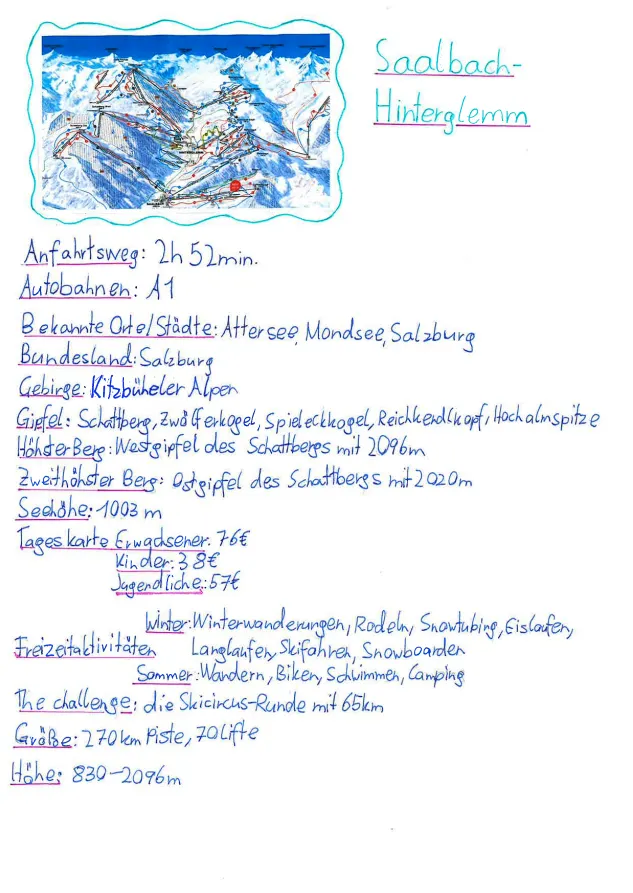 Saalbach-
Hinterglemm
Anfahrtsweg: 2h 52min.
Autobahnen: A1
Bekannte Orte/Städte: Attersee, Mondsee, Salzburg
Bundesland: Salzburg
Gebirge: Kitzbüheler Alpen
Gipfel: Schattberg, Zwölferkogel, Spieleckkogel, Reichkendlkopf, Hochalmspitze
Höhster Berg: Westgipfel des Schattbergs mit 2096m
Zweithöhster Berg: Ostgipfel des Schattbergs mit 2020m
Seehöhe: 1003 m
Tageskarte Erwachsener: 76€
Kinder: 38€
Jugendliche: 57€
Winter: Winterwanderungen, Rodeln, Snowtubing, Eislaufen,
Freizeitaktivitäten Langlaufen, Skifahren, Snowboarden
Sommer: Wandern, Biken, Schwimmen, Camping
The challenge: die Skicircus-Runde mit 65km
Größe: 270km Piste, 70 Lifte
Höhe: 830-2096m